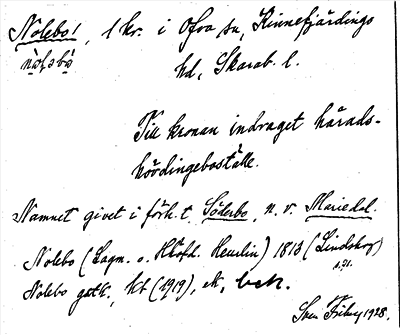 Nolebo!, 1 kr. i Ova sn, Kinnefjärdings
nò̀lǝbò hd, Skarab. l.
Till kronan indraget härads-
hövdingeboställe.
Namnet givet i förh. t. Söderbo, n. v. Mariedal.
Nolebo (Lagm. o. Höfd. Heurlin) 1813 (Lindskog)
s. 71.
Nolebo getk., kt (1919), ek, bek.
Sven Fribeg 1928.